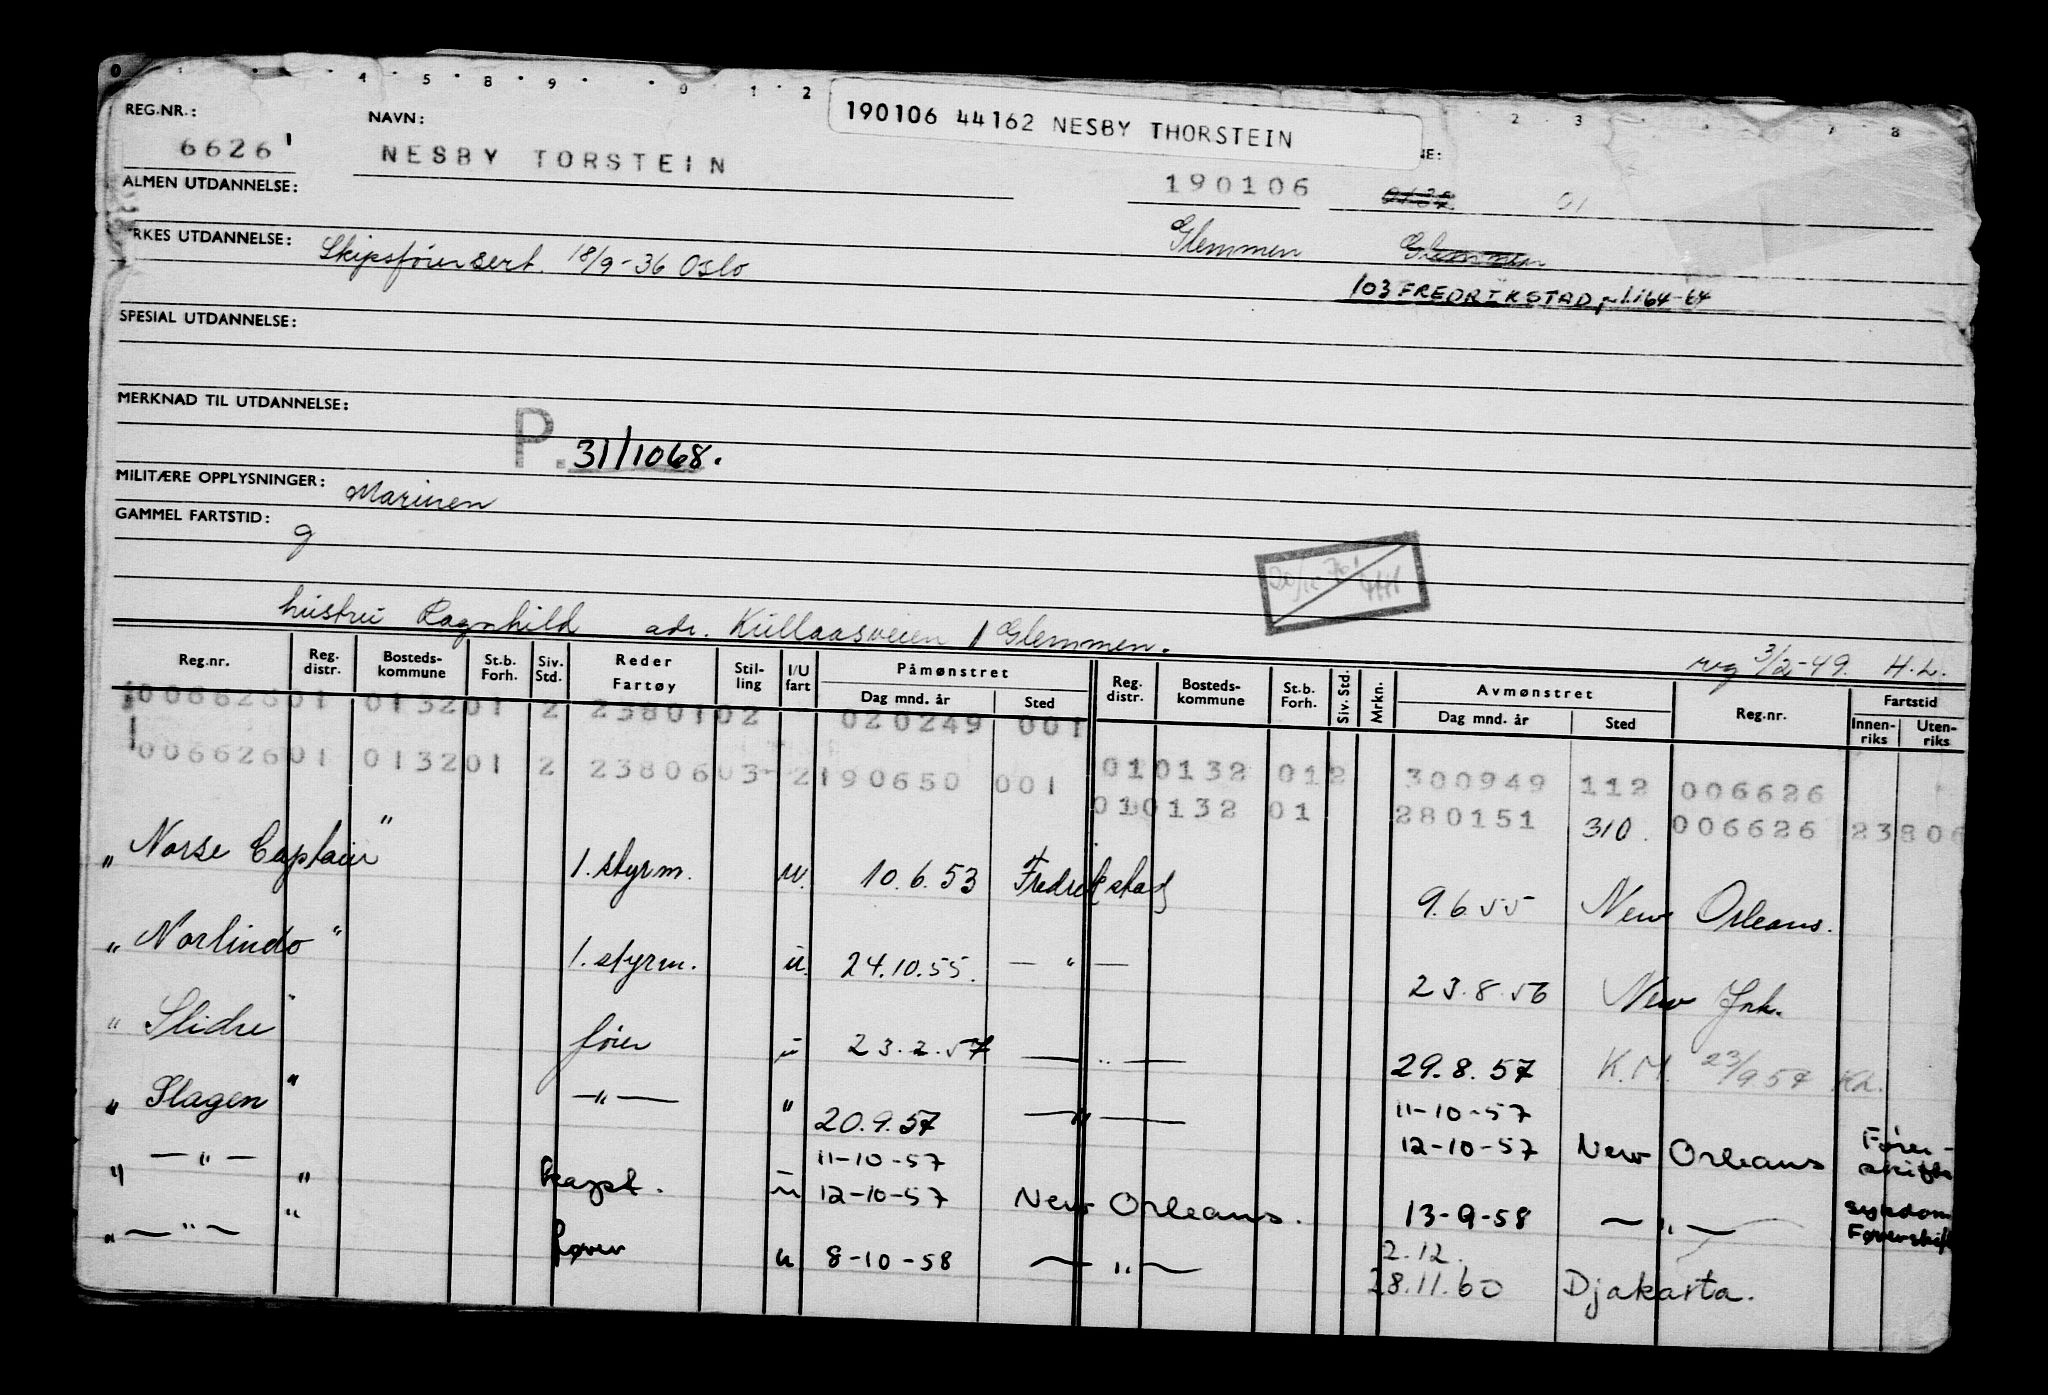 0 4 5 8 9 0 1 2 2 3 7 8
190106 44162 NESBY THORSTEIN
REG.NR.: NAVN: NE:
6626 NESBY TORSTEIN 190106 0132 01
ALMEN UTDANNELSE:
Glemmen Glemmen
RKES UTDANNELSE: Skipsførersert. 18/9-36 Oslo
103 FREDRIKSTAD, 1.1 64-64
SPESIAL UTDANNELSE:
MERKNAD TIL UTDANNELSE:
P. 31/1068.
MILITÆRE OPPLYSNINGER: Marinen
GAMMEL FARTSTID: 9
hustru Ragnhild adr. Kullaasveien 1 Glemmen.
reg 3/2-49. H.L.
Reg.nr. Reg. distr. Bosteds-kommune St.b. Forh. Siv. Std. Reder Fartøy Stil-ling I/U fart Påmønstret Dag mnd. år Sted Reg. distr. Bosteds-kommune St.b. Forh. Siv. Std. Mrkn. Avmønstret Dag mnd. år Sted Reg.nr. Fartstid Innen-riks Uten-riks
00662601 013201 2 2380102 020249 001
00662601 013201 2 2380603-2190650 001 010132 012 300949 112 006626
010132 01 280151 310. 006626 23806
" Norse Captain " 1. styrm. u. 10.6.53 Fredrikstad 9.6.55 New Orleans.
" Norlindo " 1. styrm. u. 24.10.55. — " — 23.8.56 New York.
" Slidre " fører u 23.2.57 — " — 29.8.57 K.M. 23/9 57
" Slagen " — " — " 20.9.57 — " — 11-10-57
12-10-57 New Orleans Fører-skifte
" — " — " kapt. u 11-10-57
12-10-57 New Orleans. 13-9-58 — " — sykdom Førerskift
" — " — " fører u 8-10-58 — " — 2.12.
28.11.60 Djakarta.